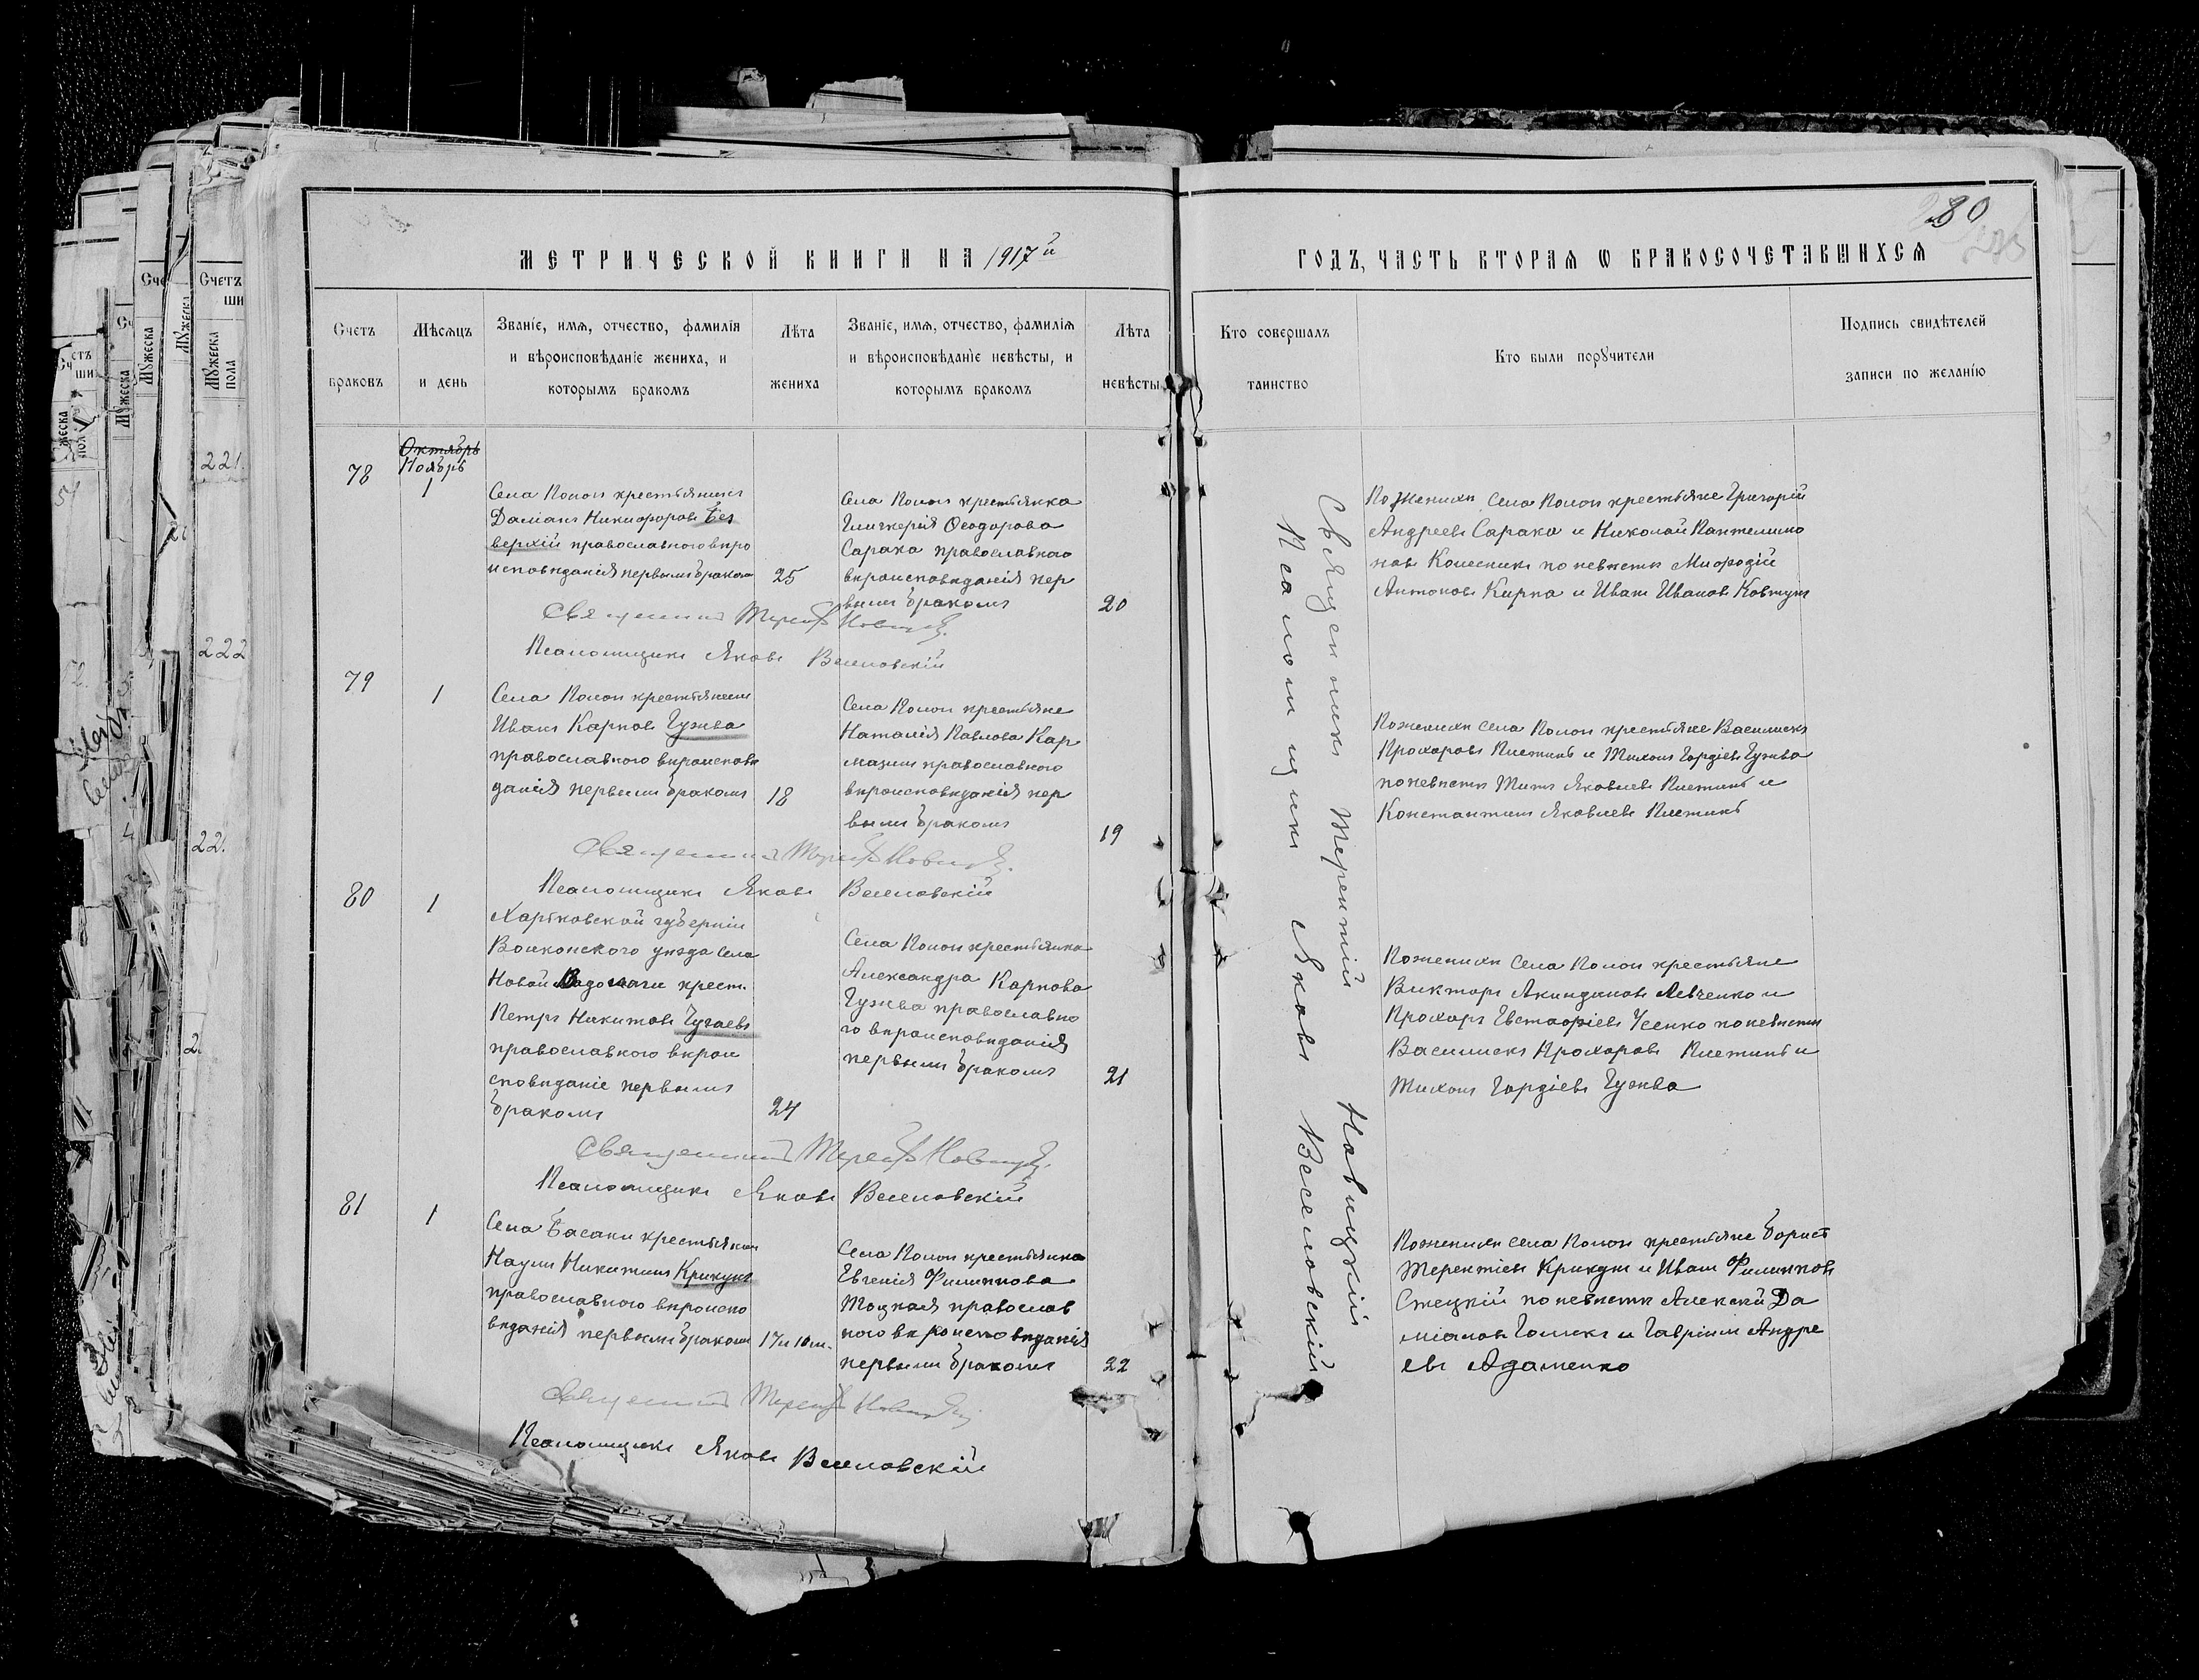 280
МЕТРИЧЕСКОЙ КНИГИ НА 1917й
ГОДЪ, ЧАСТЬ ВТОРАЯ Ѡ БРАКОСОЧЕТАВШИХСЯ
Счетъ
браковъ
Мѣсяцъ
и день
Званіе, имя, отчество, фамилія
и вѣроисповѣданіе жениха, и
которымъ бракомъ
Лѣта
жениха
Званіе, имя, отчество, фамилія
и вѣроисповѣданіе невѣсты, и
которымъ бракомъ
Лѣта
невѣсты
Кто совершалъ
таинство
Кто были поручители
Подпись свидѣтелей
записи по желанію
Октябрь
Ноябрь
78
1
Села Попои крестьянинъ
Даміанъ Никифоровъ Без
верхій православнаго вѣро
исповѣданія первымъ бракомъ
25
Села Попои крестьянка
Гликерія Ѳеодорова
Сарака православнаго
вѣроисповѣданія пер
вымъ бракомъ
20
По женихѣ села Попои крестьяне Григорій
Андреевъ Сарака и Николай Пантелимо
новъ Колесникъ по невѣстѣ Мефодій
Антоновъ Кирпа и Иванъ Ивановъ Ковтунъ
Священникъ
Псаломщикъ Яковъ Веселовскій
79
1
Села Попои крестьянинъ
Иванъ Карповъ Гужва
православнаго вѣроисповѣ
данія первымъ бракомъ
18
Села Попои крестьянка
Наталія Павлова Кар
мазинъ православнаго
вѣроисповѣданія пер
вымъ бракомъ
19
По женихѣ села Попои крестьяне Василискъ
Прохоровъ Плетинь и Тихонъ Гордіевъ Гужва
по невѣстѣ Титъ Яковлевъ Плетинь и
Константинъ Яковлевъ Плетинь
Священникъ
Псаломщикъ Яковъ Веселовскій
80
1
Харьковской губерніи
Волконского уѣзда села
Новой Водолаги крест.
Петръ Никитовъ Чугаевъ
православнаго вѣрои
сповѣданіе первымъ
бракомъ
24
Села Попои крестьянка
Александра Карпова
Гужва православна
го вѣроисповѣданія
первымъ бракомъ
21
По женихѣ села Попои крестьяне
Викторъ Акиндиновъ Левченко и
Прохоръ Евстафіевъ Усенко по невѣстѣ
Василискъ Прохоровъ Плетинь и
Тихонъ Гордіевъ Гужва
Священникъ
Псаломщикъ Яковъ Веселовскій
81
1
Села Басани крестьянинъ
Наумъ Никитинъ Крикунъ
православнаго вѣроиспо
вѣданія первымъ бракомъ
17 и 10 м.
Села Попои крестьянка
Евгенія Филиппова
Тоцкая православ
ного вѣроисповѣданія
первымъ бракомъ
22
По женихѣ села Попои крестьяне Борисъ
Терентіевъ Крикунъ и Иванъ Филипповъ
Стецкій по невѣстѣ Алексѣй Да
міановъ Голикъ и Гавріилъ Андре
евъ Адаменко
Священникъ
Псаломщикъ Яковъ Веселовскій
Священникъ Терентій Новицкій
Псаломщикъ Яковъ Веселовскій
Счетъ
МУжеска
пола
221.
222
22.
2.